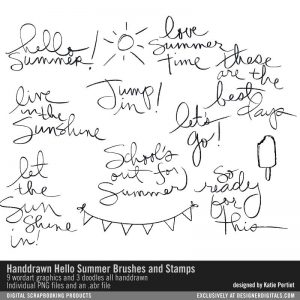 hello
Summer!
love
Summer
time
these
are the
best
days
live
in the
Sunshine
Jump
in!
let's
go!
let
the
Sun
Shine
in!
School's
out for
Summer
so
ready
for
this
Handdrawn Hello Summer Brushes and Stamps
9 wordart graphics and 3 doodles all handdrawn
Individual PNG files and an .abr file
designed by Katie Pertiet
DIGITAL SCRAPBOOKING PRODUCTS
EXCLUSIVELY AT DESIGNERDIGITALS.COM